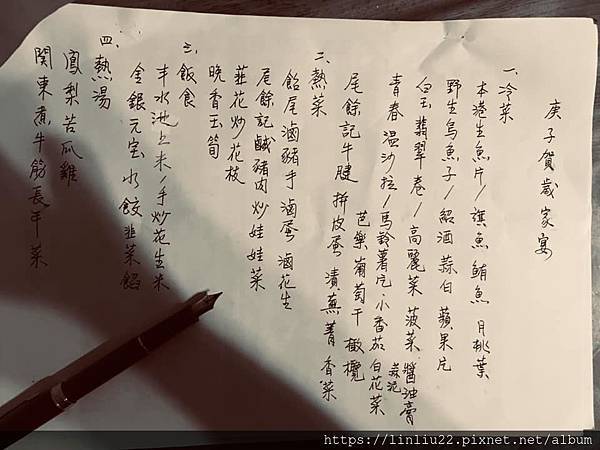 庚子賀歲家宴
一、冷菜
本港生魚片/旗魚 鮪魚 月桃葉
野生烏魚子/紹酒 蒜白 蘋果片
白玉翡翠卷/高麗菜 菠菜 醬油膏
蒜泥
青春溫沙拉/馬鈴薯片 小番茄 白花菜
芭樂 葡萄干 橄欖
尾餘記牛腱 拼皮蛋 漬蕪菁 香菜
二、熱菜
飴尾滷豬手 滷蛋 滷花生
尾餘記鹹豬肉炒娃娃菜
韮花炒花枝
晚香玉筍
三、飯食
丰水池上米/手炒花生米
金銀元宝水餃韮菜餡
四、熱湯
鳳梨苦瓜雞
関東煮牛筋長年菜
https://linliu22.pixnet.net/album